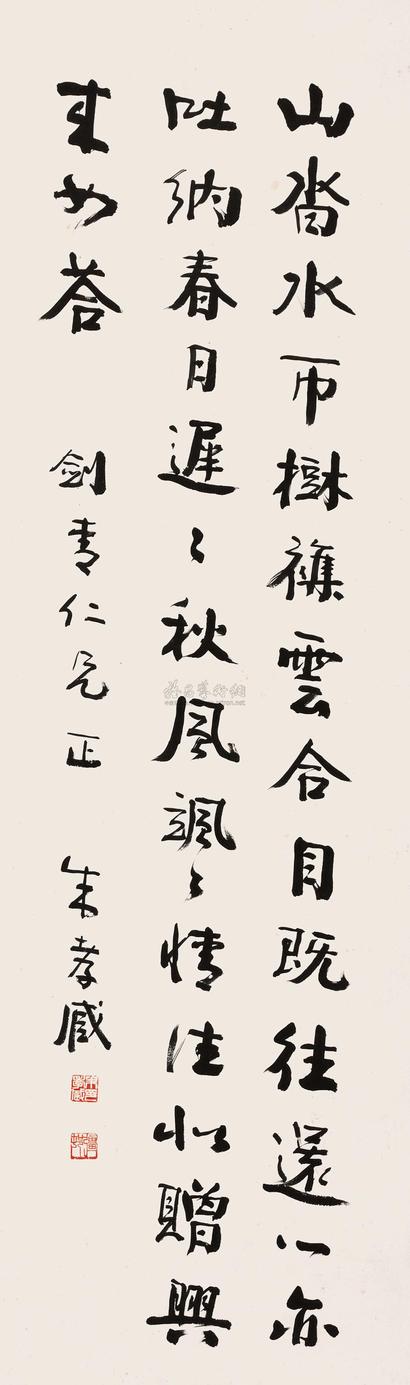 山沓水帀樹襍雲合目既往還心亦
吐納春日遲〻秋風颯〻情往似贈興
來如荅
劍青仁兄正 朱孝臧